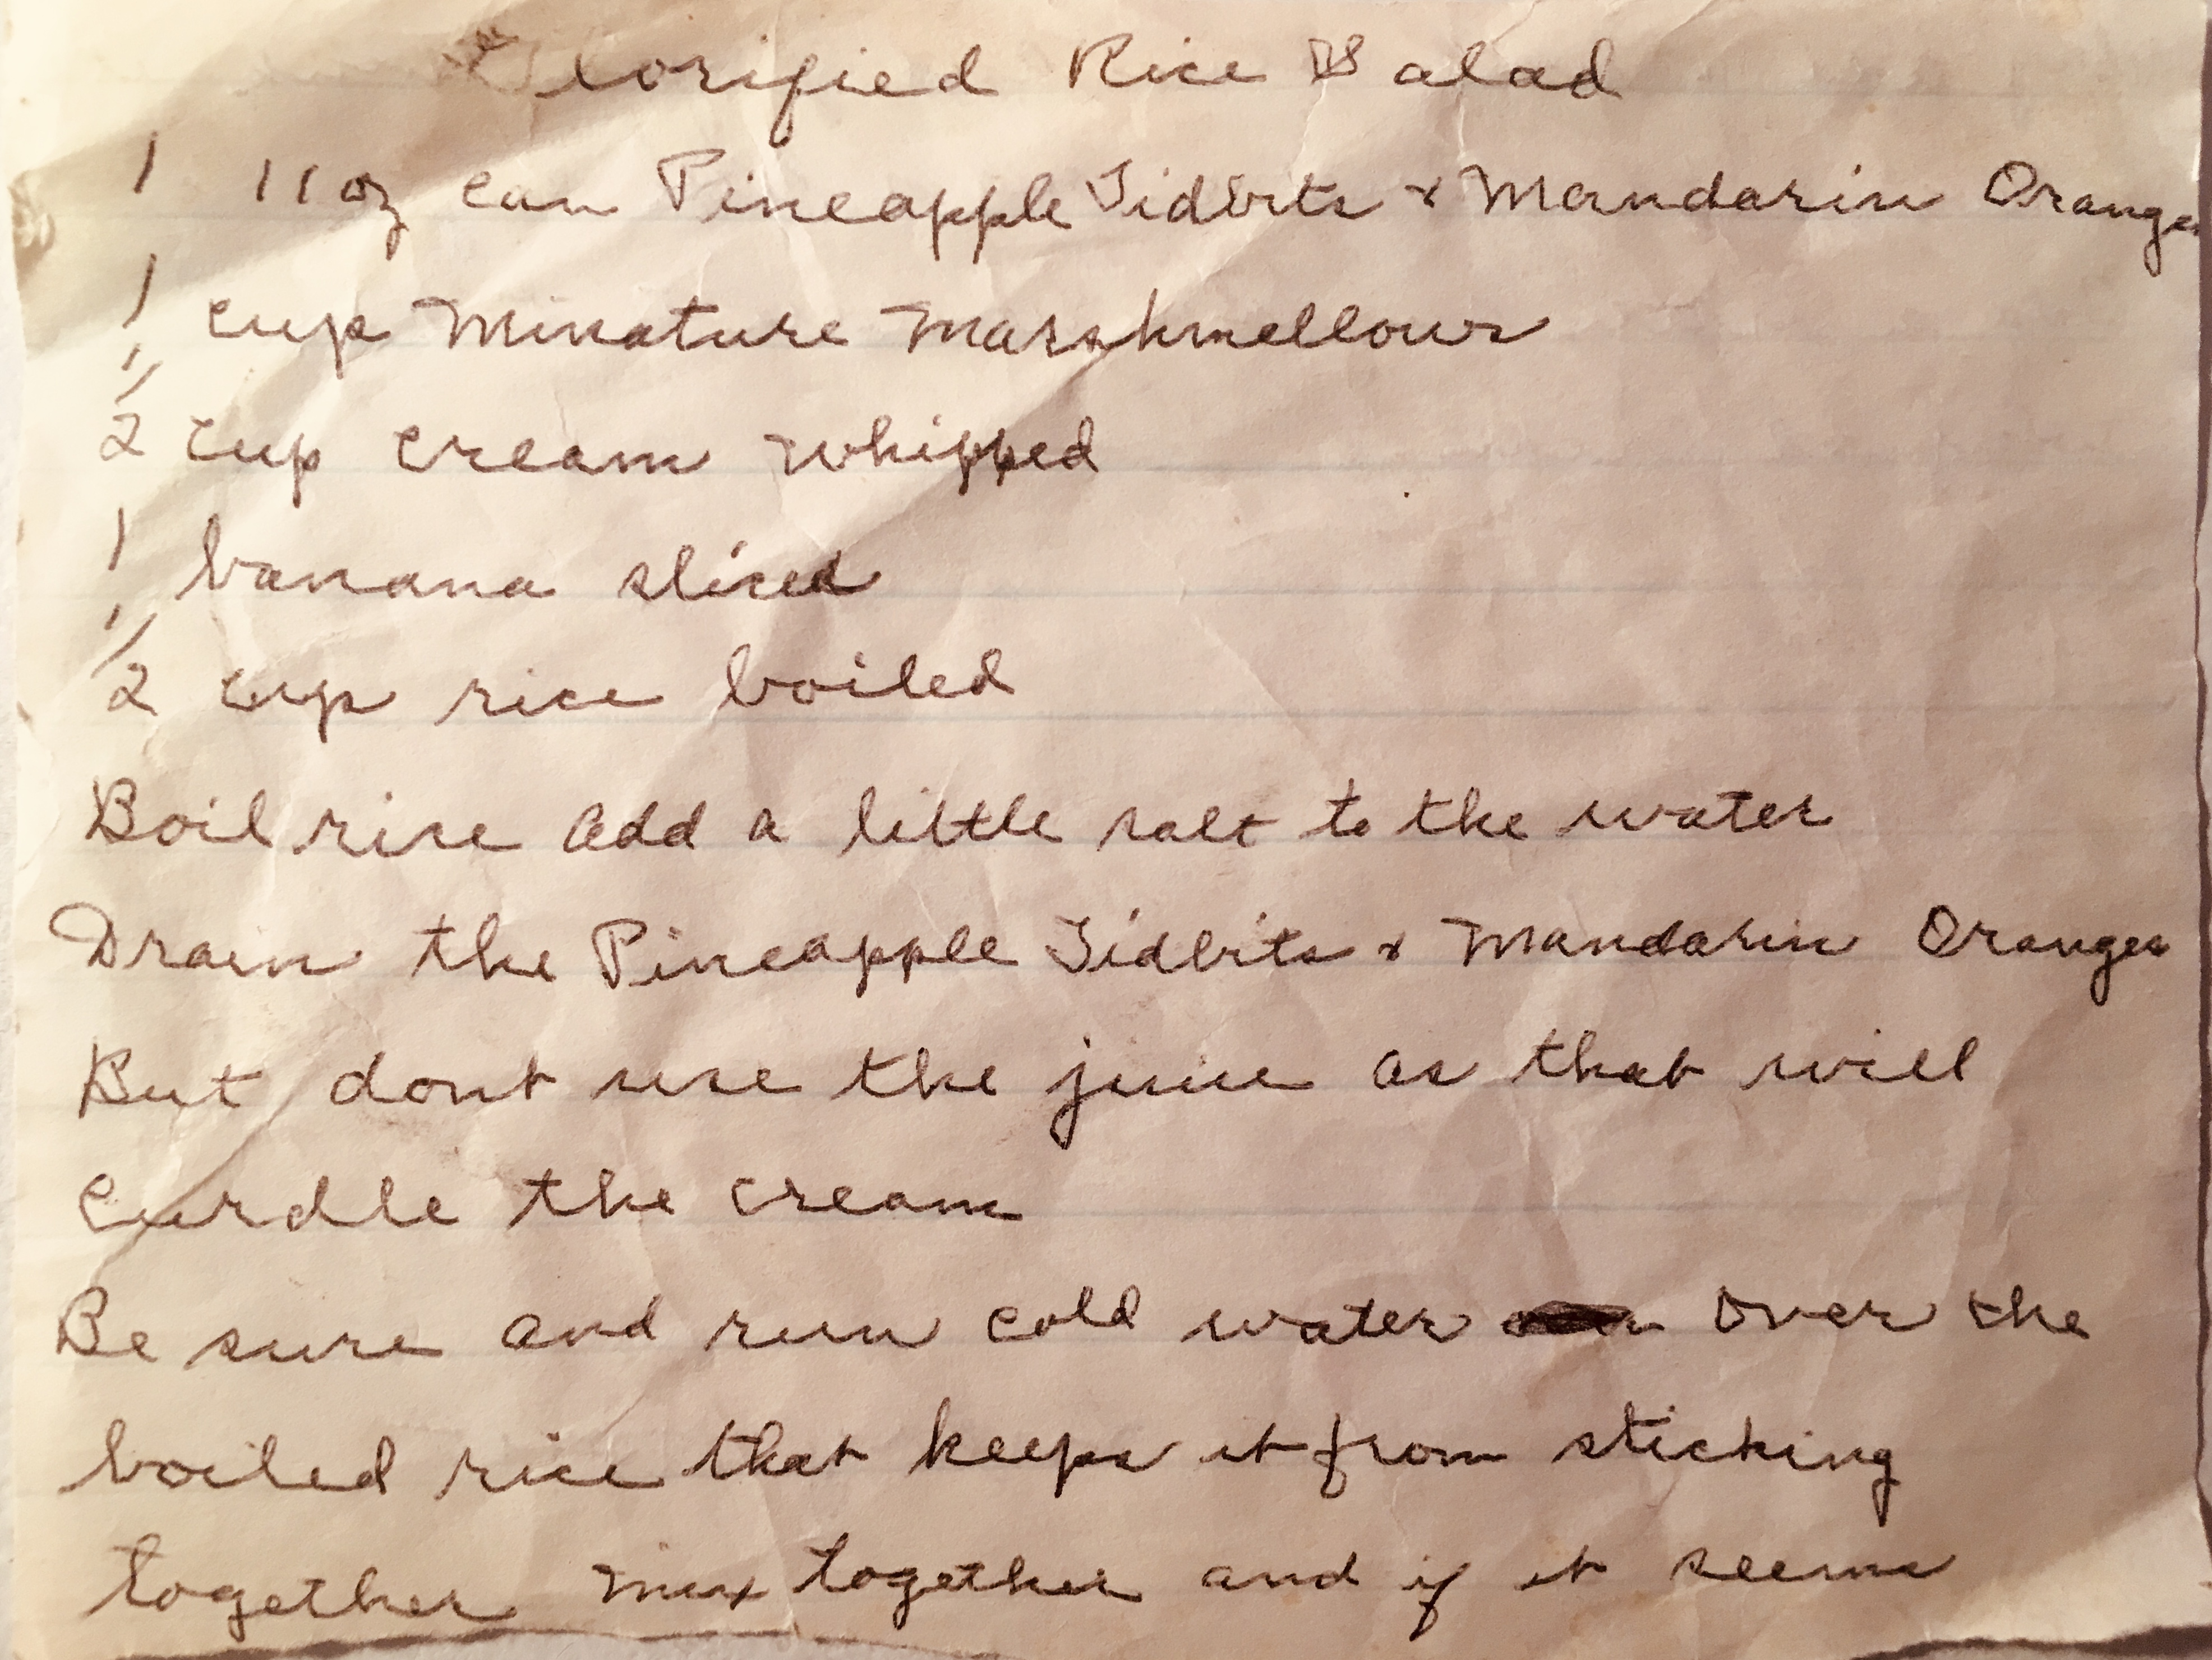 Glorified Rice Salad
1 11 oz can Pineapple Tidbits & Mandarin Oranges
1 cup Minature Marshmellows
1/2 cup cream whipped
1 banana sliced
1/2 cup rice boiled
Boil rice add a little salt to the water
Drain the Pineapple Tidbits & Mandarin Oranges
But dont use the juice as that will
curdle the cream
Be sure and run cold water over the
boiled rice that keeps it from sticking
together mix together and if it seems